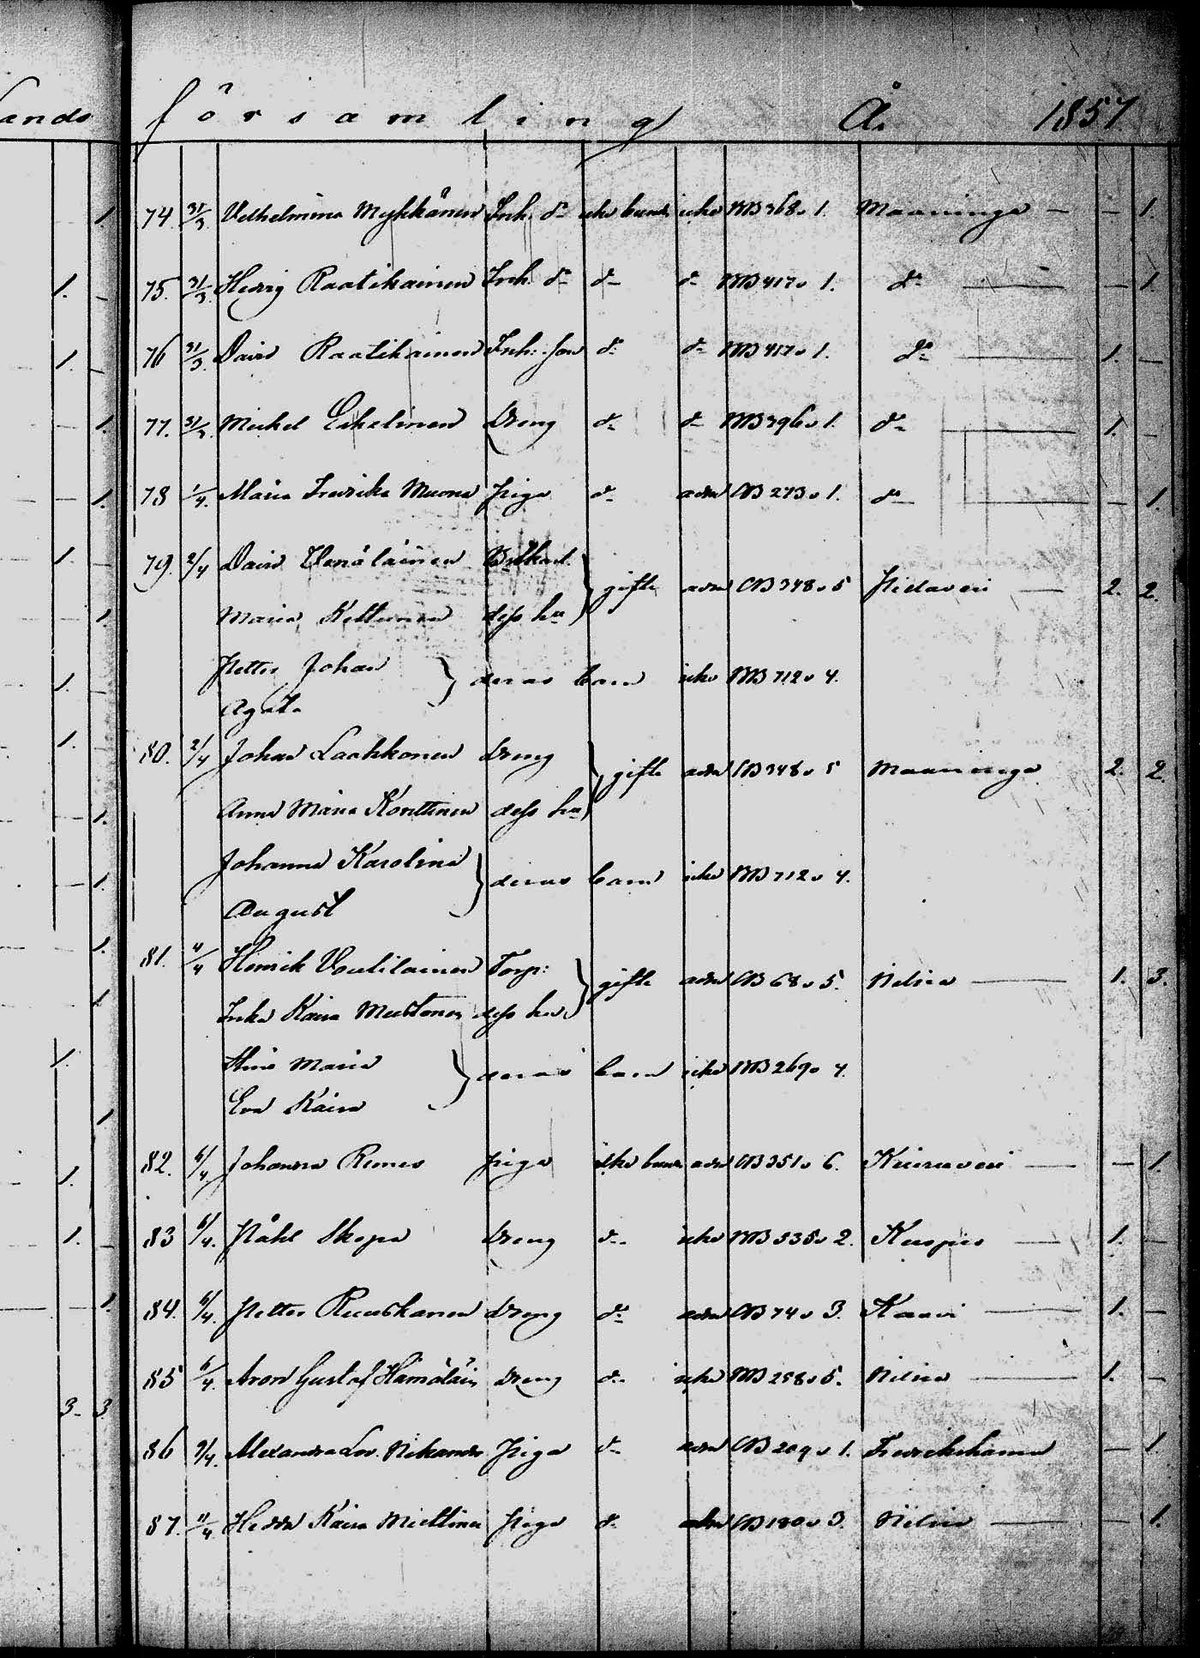 ands
församling År 1857
1. 74. 31/3 Vilhelmina Mykkänen Inh. dr icke bunds icke MB 368 v 1. Maaninga — – 1.
1. – 75. 31/3 Hedvig Raatikainen Inh. dr do do MB 417 v 1. do — – 1.
1. – 76 31/3 David Raatikainen Inh: son do do MB 417 v 1. do — 1. –
– 1. 77. 31/3 Mickel Eskelinen Dreng do do MB 396 v 1. do — 1. –
– 1. 78 1/4 Maria Fredrika Muona Piga do adm CB 273 v 1. do — – 1.
1. – 79. 2/4 David Venäläinen
gifte adm CB 348 v 5 Pidaveri — 2. 2.
– 1. Maria Kettunen dess hu
Petter Johan
1. – deras barn icke MB 712 v 4.
Agata
1. – 80. 2/4 Johan Laakkonen Dreng
gifte adm CB 348 v 5 Maaninga 2. 2.
– 1. Anna Maria Konttinen dess hu
Johanna Karolina
– 1. deras barn icke MB 712 v 4.
August
1. 81. 4/4 Henrik Voutilainen Torp:
gifte adm CB 68 v 5. Nilsia — 1. 3.
1. Kaisa Mustonen dess hu
1. Stina Maria
deras barn icke MB 269 v 4.
1. Eva Kaisa
82. 6/4 Johanna Remes Piga icke bunds adm CB 351 v 6. Kiuruvesi — – 1.
1. 83 6/4. Påhl Skopa Dreng do icke MB 535 v 2. Kuopio — 1. –
1. 84. 6/4. Petter Ruuskanen Dreng do adm CB 74 v 3. Kaavi — 1. –
85 6/4. Aron Gustaf Hämäläin Dreng do icke MB 258 v 5. Nilsia — 1. –
3. 3
86 9/4. Alexandra Lov. Nikander Piga do adm CB 209 v 1. Fredrikshamn – 1.
87. 11/4. Hedda Kaisa Miettinen Piga do adm CB 180 v 3. Nilsia — – 1.